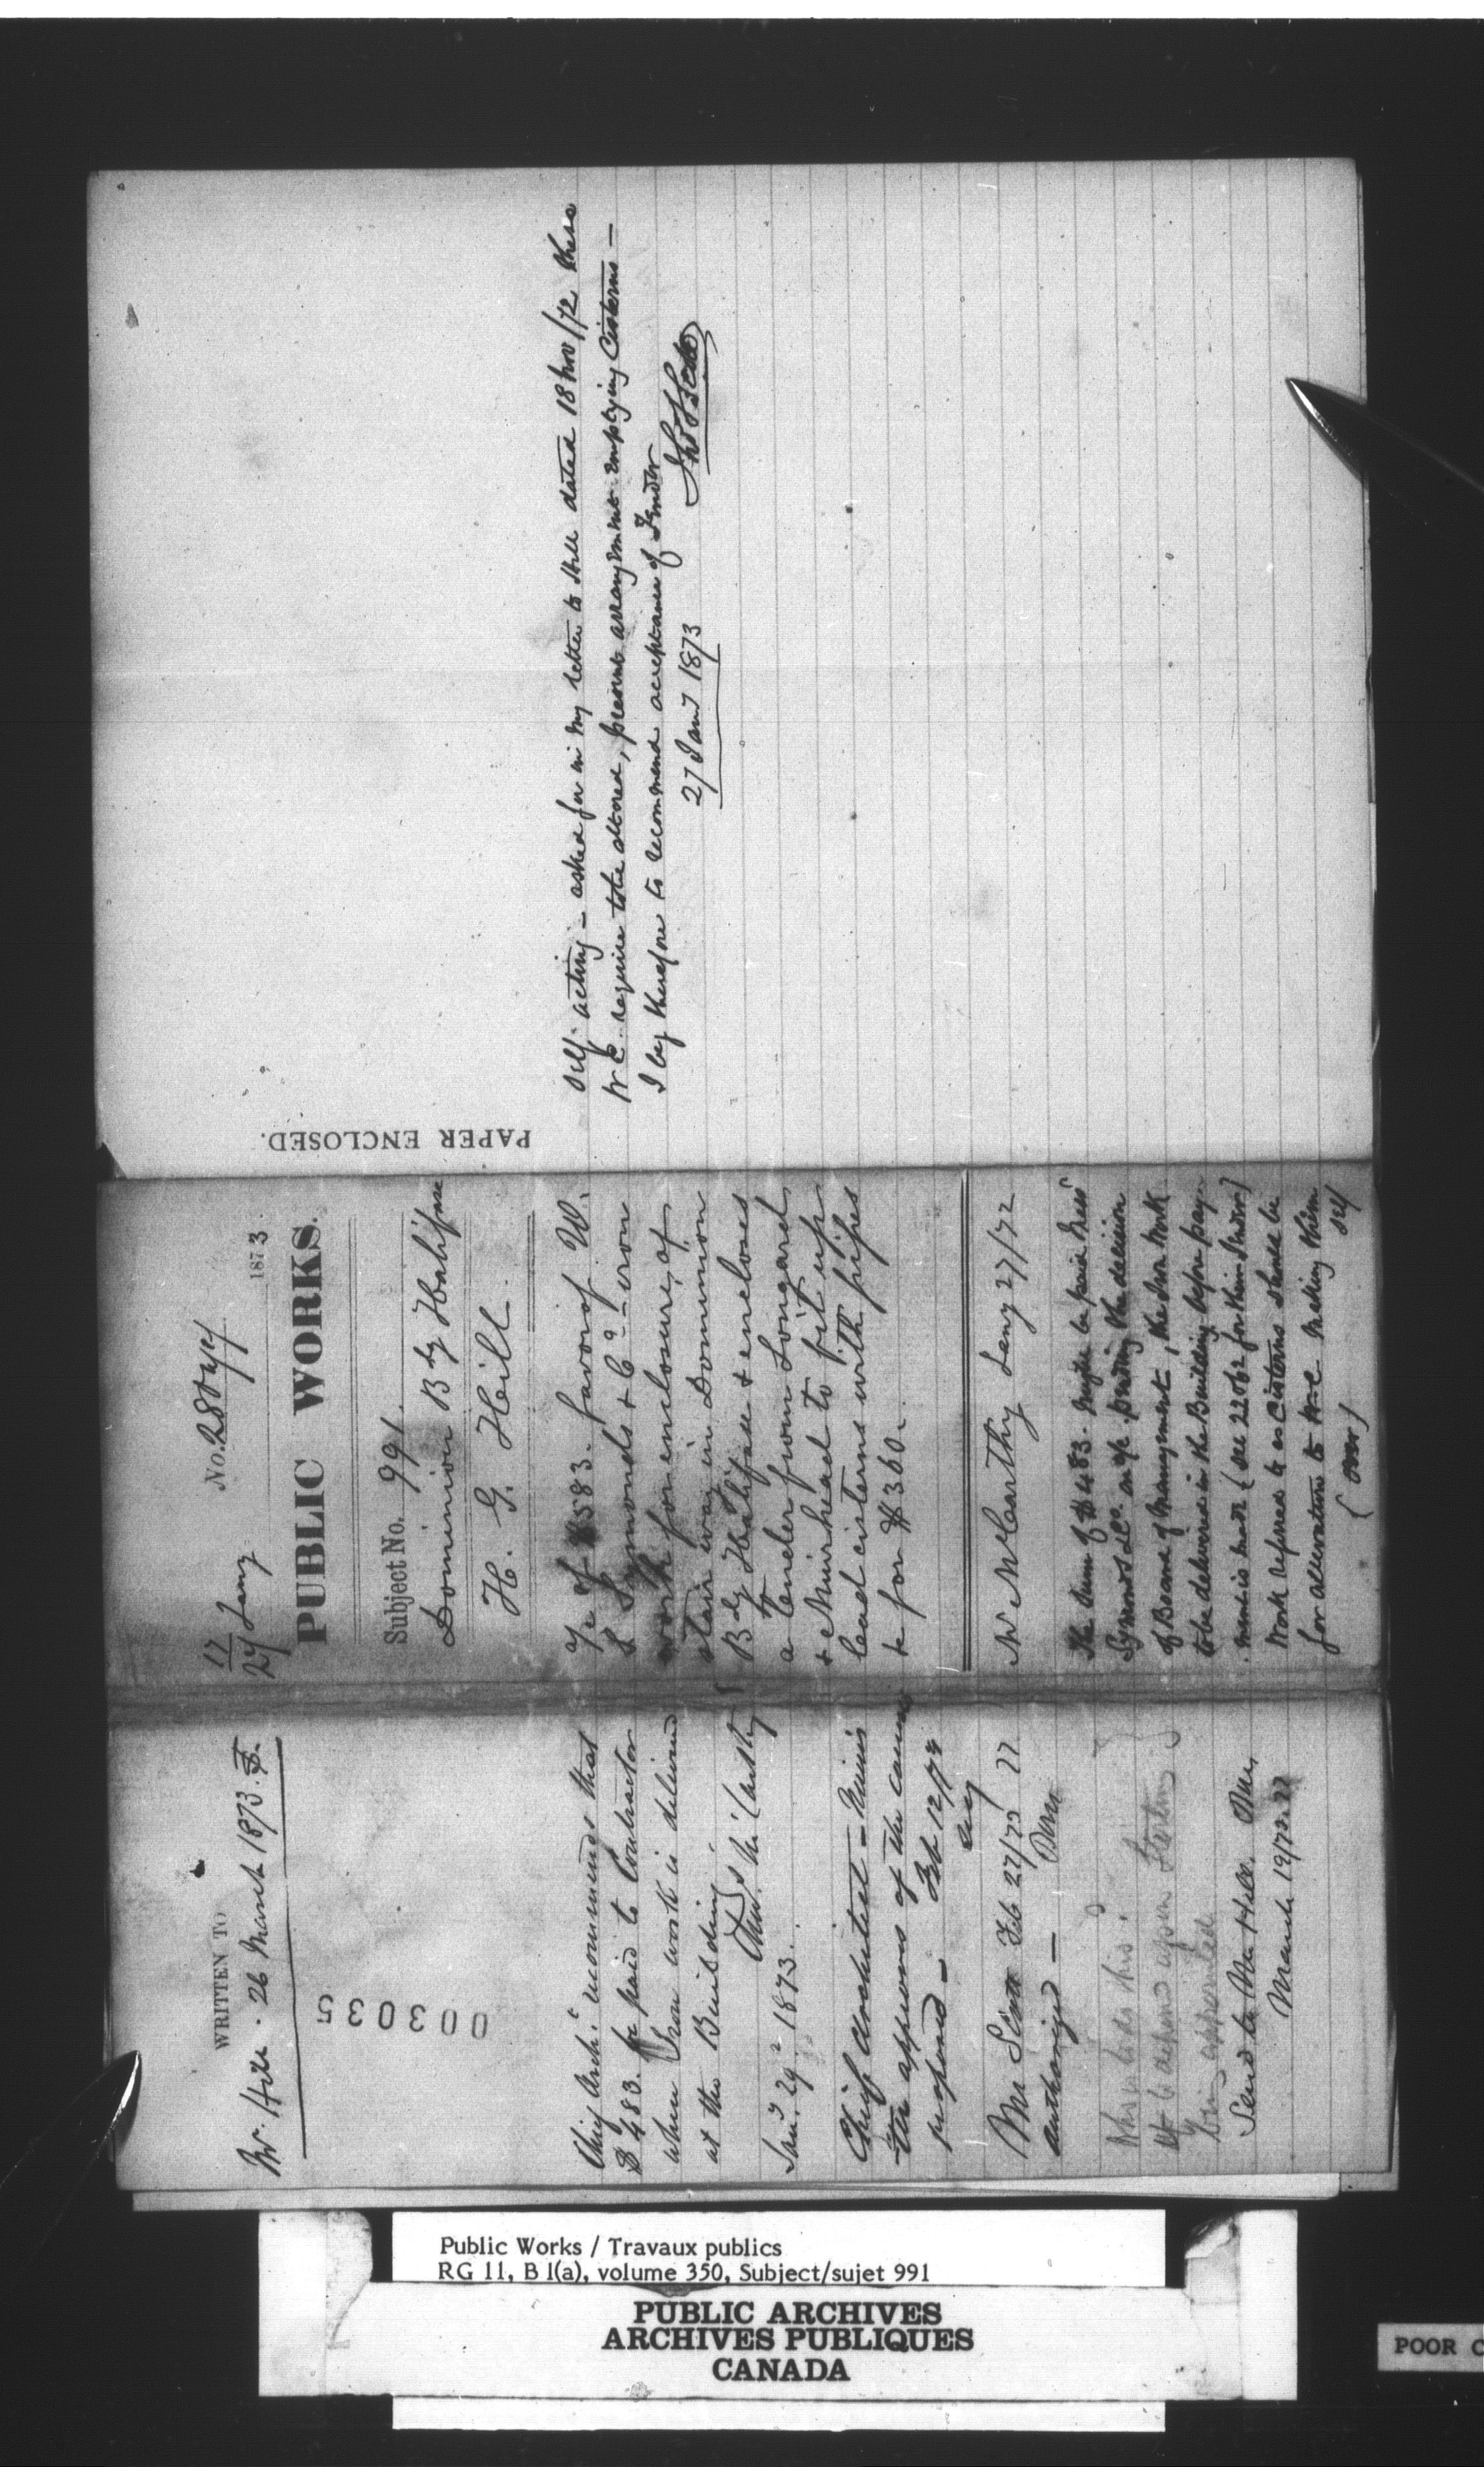 WRITTEN TO
Mr. Hill. 26 March 1873.
003035
Chief Archt. recommends that
$483. be paid to Contractor
when Iron work is delivered
at the Building.
Chas. McCarthy
Jany. 29 1873.
Chief Architect —
the approval of the
proposed —
Feb 12/73
Mr Scott Feb 22/73
authorized —
Who is to do this?
to depend upon
being appointed
Send to Mr Hill.
March 19/73.
17
27 Jany
No. 28047
1873
PUBLIC WORKS.
Subject No. 991
Dominion Bdg Halifax
H. G. Hill
a/c of $583. favor of W.
S. Symonds & Co - iron
work for enclosure, of
stair way in Dominion
Bdg Halifax & encloses
a tender from Longard
& Muirhead to fit up
lead cisterns with pipes
& for $360.
Mr McCarthy Jany 27/72
The sum of $483. might be paid Mess
Symonds & Co. on a/c pending the decision
of Board of Management, the Iron Work
to be delivered in the Building before pay
ment is made (see 22062 for their tender)
Work refered to as Cisterns should be
for alterations to W.C making them
self
(over)
PAPER ENCLOSED.
self acting — asked for in my letter to Hill dated 18 Nov/72 these
W C. require to be altered, present arrangement emptying Cisterns —
I beg therefore to recommend acceptance of Tender
27 Jany 1873
Public Works / Travaux publics
RG 11, B 1(a), volume 350, Subject/sujet 991
PUBLIC ARCHIVES
ARCHIVES PUBLIQUES
CANADA
POOR C